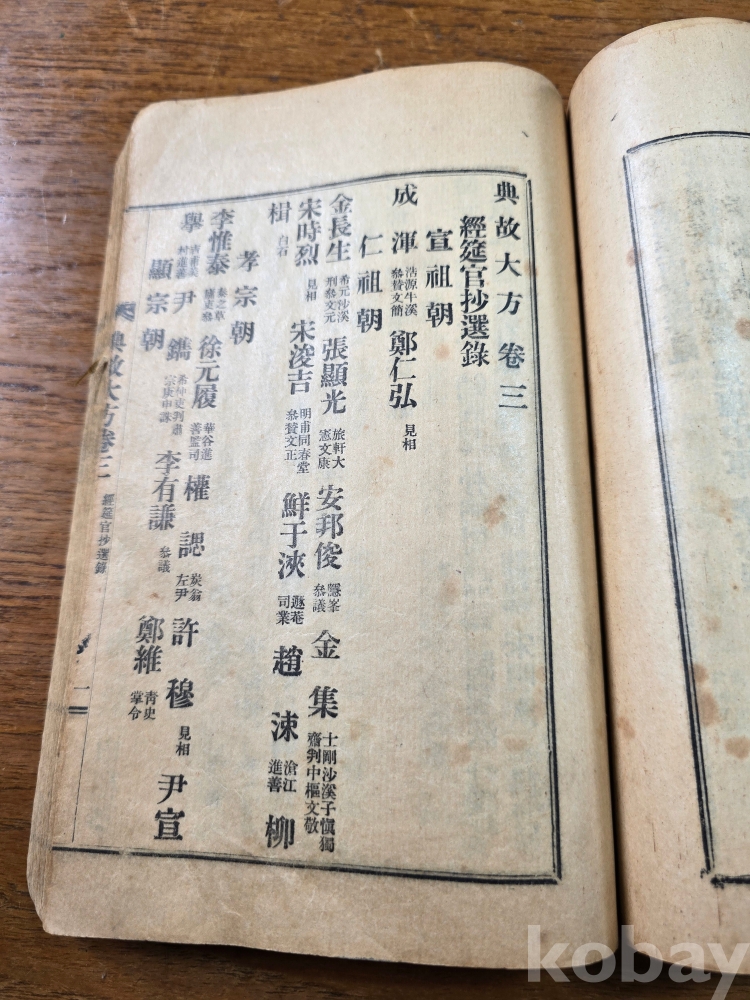 典故大方卷三
經筵官抄選錄
宣祖朝
成渾 浩源牛溪參贊文簡 鄭仁弘 見相
仁祖朝
金長生 希元沙溪刑參文元 張顯光 旅軒大憲文康 安邦俊 隱峯參議 金集 士剛沙溪子愼獨齋判中樞文敬
宋時烈 見相 宋浚吉 明甫同春堂參贊文正 鮮于浹 遯菴司業 趙涑 滄江進善 柳
楫 白石
孝宗朝
李惟泰 泰之草廬吏參 徐元履 華谷進善監司 權諰 炭翁左尹 許穆 見相 尹宣
擧 吉甫美村進善 尹鑴 希仲吏判肅宗庚申誅 李有謙 參議 鄭維 靑史掌令
顯宗朝
典故大方卷三 經筵官抄選錄 一
kobay